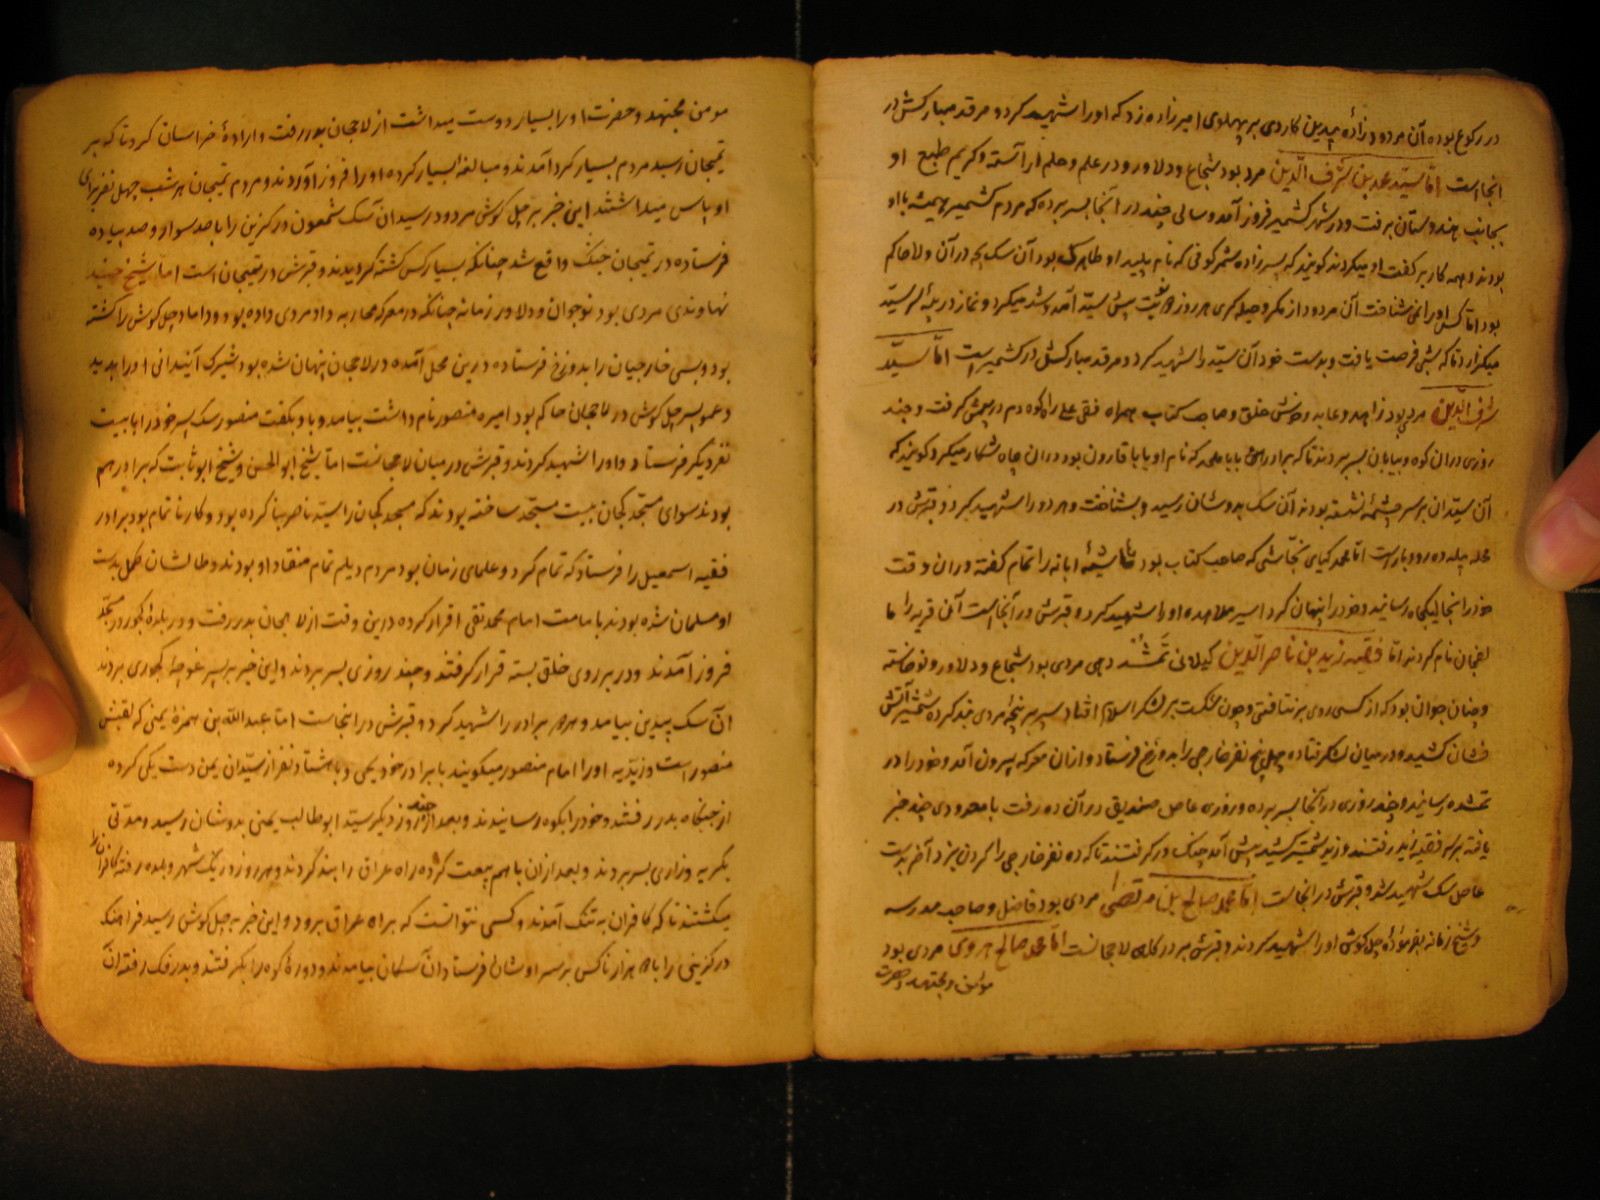 در رکوع بوده آن مردود زاده بیدین کاردی بر پهلوی امیرزاده زد که اورا شهید کرد و مرقد مبارکش در
انجاست امّا سیّد محمد بن شرف الدّین مرد بود شجاع و دلاور و در علم و حلم اراسته و کریم طبع او
بجانب هندوستان برفت و در شهر کشمیر فروز آمد و سالی چند در آنجا بسر برده که مردم کشمیر همیشه با او
بودند و همه کار بر کفت او میکردند کویند که پسر زاده شمر کوفی که نام پلید او طاهرک بود آن سک بچه در آن ولا حاکم
بود امّا کسی اورا نمی شناخت آن مردود از مکر و حیله کری هر روز نوبت پیش سیّد آمد وشد میکرد و نماز در پی سیّد
میکزارد تا که شبی فرصت یافت و بدست خود آن سیّد را شهید کرد و مرقد مبارکش در کشمیرست امّا سیّد
شرف الدّین مردی بود زاهد و عابد و خوش خلق و صاحب کتاب همراه فقی علی راه کوه دم در پیش کرفت و چند
روزی دران کوه و بیابان بسر بردند تا که برادر بابا علی که نام او بابا قارون بود دران جاه شکار میکرد کویند که
آن سیّدان بر سر چشمهٔ نشسته بودند آن سک بدوشان رسید و بشناخت و هر دو را شهید کرد و قبرش در
محله پیله ده رودبارست امّا محمد کیای نجّاشی که صاحب کتاب بود حاشیهٔ ابانه را تمام کفته دران وقت
خود را انجا لیکجاه رسانید و خود را پنهان کرد اسیر ملاحده او را شهید کرد و قبرش در آنجاست آن قریه را ما
لفمجان نام کردند امّا فقیه زید بن ناصر الدّین کیلانی تمشد دهی مردی بود شجاع و دلاور و نوخاسته
و چنان جوان بود که از کسی روی بر نتافتی و چون شکست بر لشکر اسلام افتاد سپر بر پنجهٔ مردی بند کرده شمشیر آتش
فشان کشید و در میان لشکر فتاده چهل پنج نفر خارجی را بدوزخ فرستاد و از ان معرکه بیرون آمد و خود را در
تمشده رسانید و چند روزی در آنجا بسر برده و روزی عاصل صندیق در آن ده رفت با معدودی چند خبر
یافته بر سر فقیه زید رفتند و زید شمشیر کشید پیش آمد جنک در کرفتند تا که ده نفر خارجی را کردن بزد آخر بدست
عاصل سک شهید شد و قبرش در انجاست امّا محمد صالح بن مرتضی مردی بود فاضل و صاحب مدرسه
و شیخ زمانه بفرمودهٔ چل کوش او را شهید کردند و قبرش بر در کلای لاهجانست امّا محمد صالح هروی مردی بود
مومن و مجتهد و حضرت
مومن مجتهد و حضرت او را بسیار دوست میداشت از لاهجان بدر رفت و ارادهٔ خراسان کرد تا که بر
تمیجان رسید مردم بسیار کرد آمدند و مبالغه بسیار کرده او را فروز آوردند و مردم تمیجان هر شب چهل نفر برای
او پاس میداشتند این خبر بر چل کوش مردود رسید آن سک شمعون در کزین را با صد سوار و صد پیاده
فرستاده در تمیجان جنک واقع شد چنانکه بسیار کس کشته کردیدند و قبرش در تمیجان است امّا شیخ جنید
نهاوندی مردی بود نوجوان و دلاور زمانه چنانکه در معرکه محاربه داد مردی داده بود و داماد چل کوش را کشته
بود و بسی خارجیان را بدوزخ فرستاده درین محل آمده در لاهجان پنهان شده بود شیرک آینه دانی او را بدید
و عمو پسر چل کوش در لاهجان حاکم بود امیره منصور نام داشت بیامد و باو بکفت منصور سک پسر خود را با بیست
نفر دیکر فرستاد و او را شهید کردند و قبرش در میان لاهجانست امّا شیخ ابو الحسن و شیخ ابو ثابت که برادر هم
بودند سوای مسجد کیجان بیست مسجد ساخته بودند که مسجد کیجان را سیّد ناصر بنا کرده بود و کار ناتمام بود برادر
فقیه اسمعیل را فرستاد که تمام کرد و علمای زمان بود مردم دیلم تمام منقاد او بودند و طالشان کل بدست
او مسلمان شده بودند با مامت امام محمد تقی اقرار کرده درین وقت از لاهجان بدر رفت و در بلدهٔ کجور در مسجد
فروز آمدند و در بر روی خلق بسته قرار کرفتند و چند روزی بسر بردند و این خبر بر پسر غوجل کجوری بردند
آن سک بیدین بیامد و هر دو برادر را شهید کرد و قبرش در انجاست امّا عبد اللّه بن حمزهٔ یمنی که لقبش
منصور است و زیدیه او را امام منصور میکویند با برادر خود یحیی و با هشتاد نفر از سیّدان یمن دست یکی کرده
از جنکاه بدر رفتند و خود را بکوه رسانیدند و بعد از چند روز دیکر سیّد ابو طالب یمنی بدوشان رسید و مدتی
بکریه و زاری بسر بردند و بعد از ان با هم بیعت کرده راه عراق را بند کردند و هر روز در یک شهر و بلده رفته کافران را
میکشتند تا که کافران به تنک آمدند و کسی نتوانست که براه عراق برود و این خبر به چل کوش رسید فرامنک
درکزینی را با ده هزار ناکس بر سر اوشان فرستاد آن سکان بیامدند و دور کوه را بکرفتند و بدر نک رفته آن